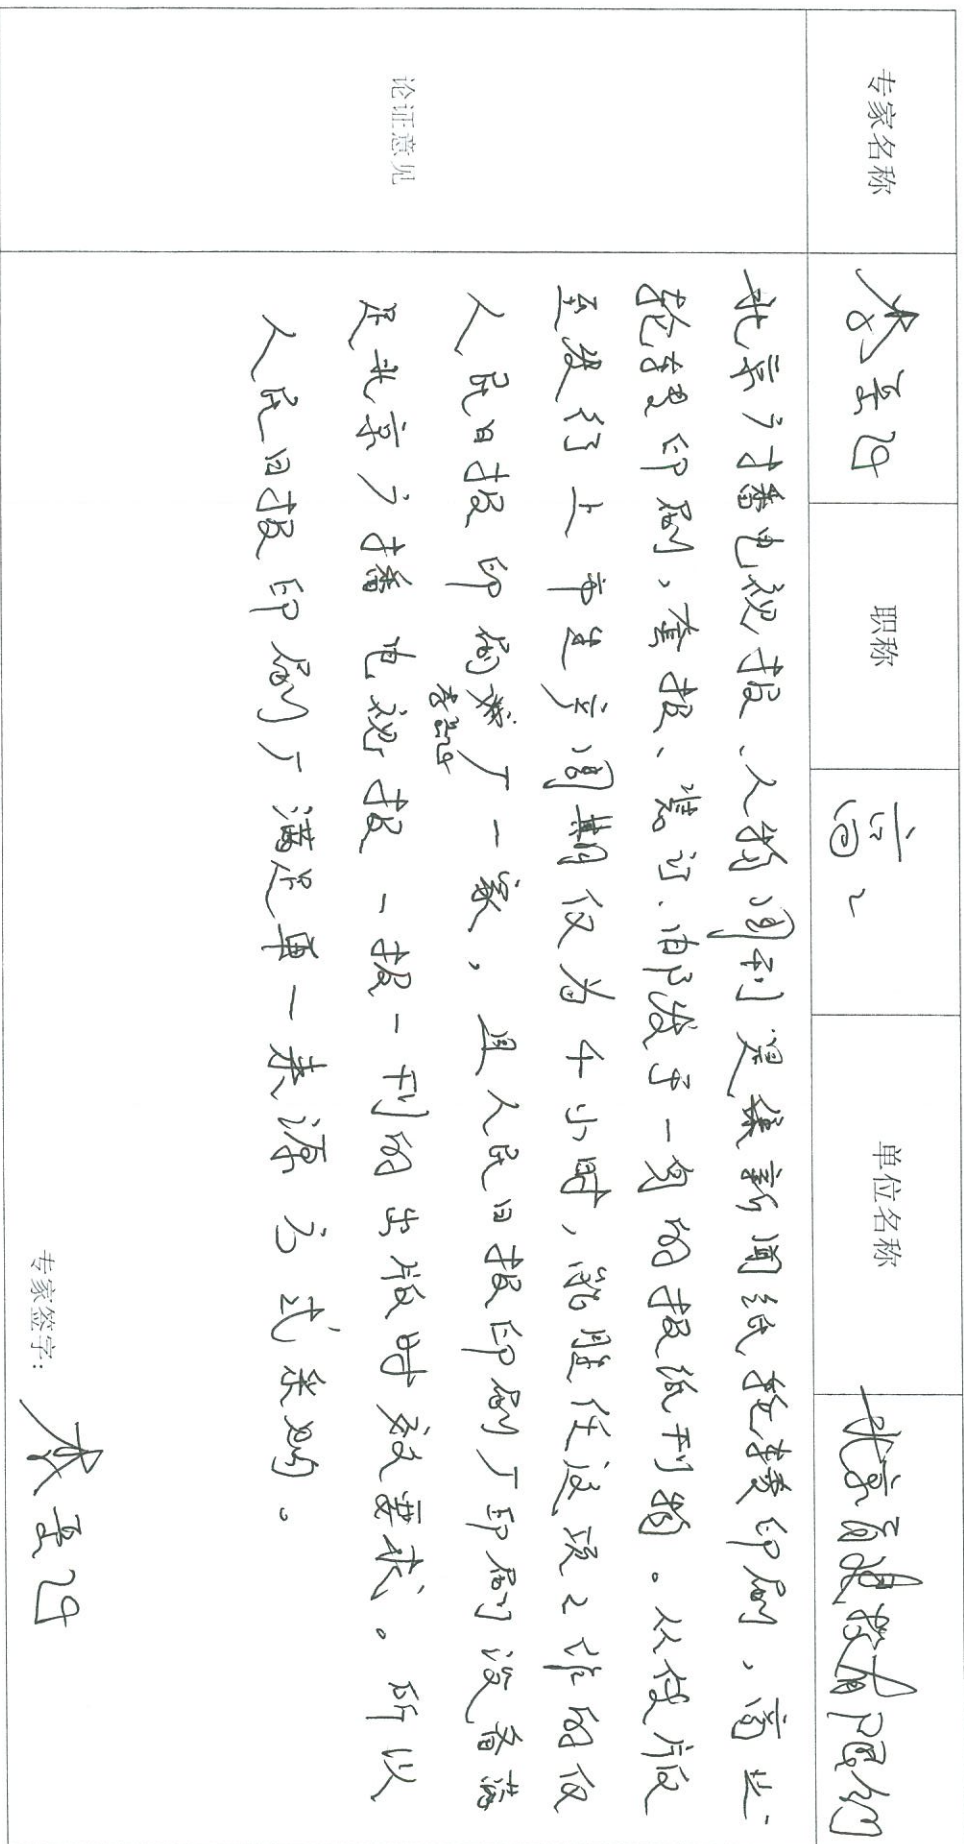 专家名称
职称
高工
单位名称
论证意见
北京广播电视报、人物周刊是集新闻纸轮转印刷,商业
轮转印刷,套报、装订、邮发于一身的报纸刊物。从传版
至发行上市生产周期仅为4小时,能胜任这项工作的仅
人民日报印刷厂一家,且人民日报印刷厂印刷设备满
足北京广播电视报一报一刊的出版时效要求。所以
人民日报印刷厂满足单一来源方式采购。
专家签字: